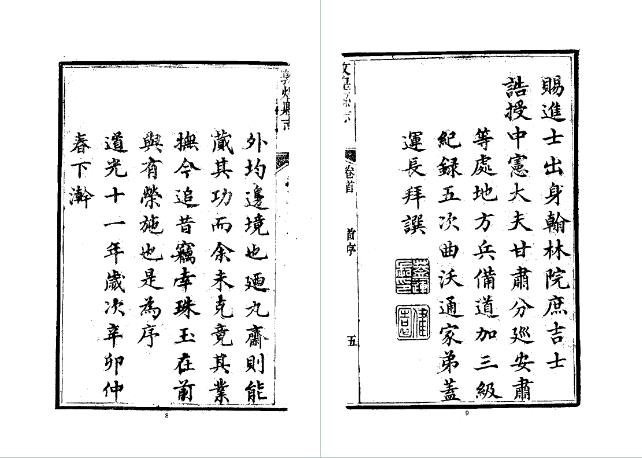 外均邊境也廼九齋則能
蕆其功而余未克竟其業
撫今追昔竊幸珠玉在前
與有榮施也是為序
道光十一年歲次辛卯仲
春下澣
敦煌縣志
8
賜進士出身翰林院庶吉士
誥授中憲大夫甘肅分廵安肅
等處地方兵備道加三級
紀録五次曲沃通家弟蓋
運長拜撰
卷首
首序
五
9